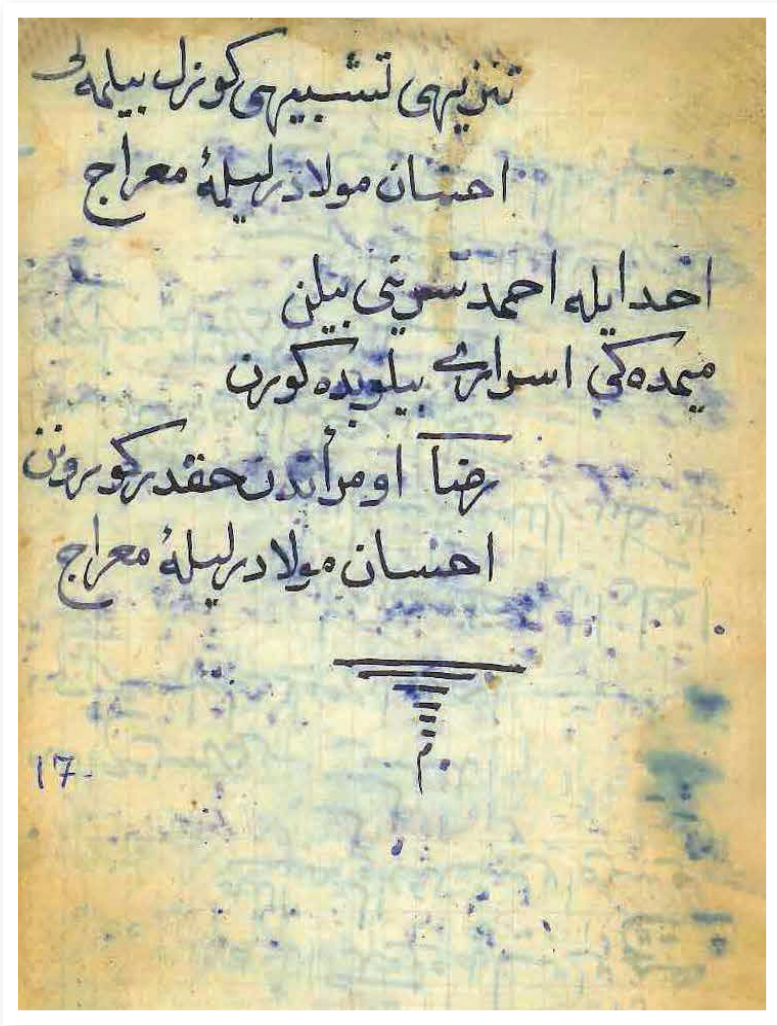 تنزیهی تشبیهی کوزل بیلمه لی
احسان مولادر لیلهٔ معراج
احد ایله احمد سرینی بیلن
میمده کی اسراری بیلوبده کورن
رضا او مرأتدن حقدر کورونن
احسان مولادر لیلهٔ معراج
م.
17-